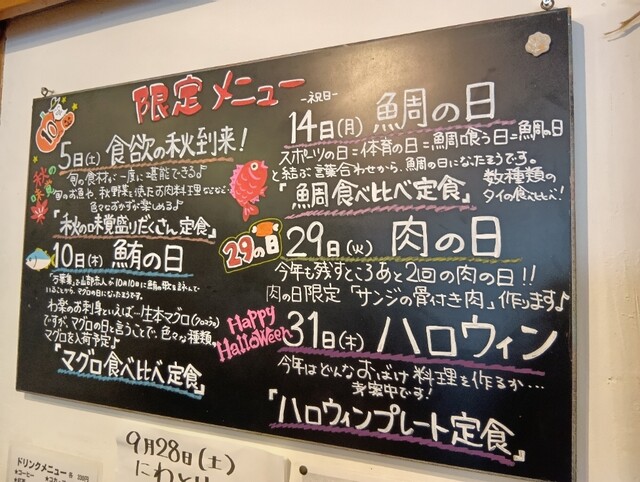 限定メニュー
10
5日(土) 食欲の秋到来!
旬の食材が一度に堪能できる♪
旬のお魚や、秋野菜を使ったお肉料理などなど
色々なおかずが楽しめる♪
「秋の味覚盛りだくさん定食」
10日(木) 鮪の日
「万葉集」で山部赤人が10月10日に鮪の歌を詠んで
いることから、マグロの日になったそうです。
わ楽のお刺身といえば…生本マグロ(クロマグロ)
ですが、マグロの日と言うことで、色々な種類の
マグロを入荷予定♪
「マグロ食べ比べ定食」
-祝日-
14日(月) 鯛の日
スポーツの日=体育の日=鯛喰う日=鯛の日
と結ぶ言葉合わせから、鯛の日になったそうです。
「鯛食べ比べ定食」
数種類の
タイの食べ比べ!
29の日
29日(火) 肉の日
今年も残すところあと2回の肉の日!!
肉の日限定「サンジの骨付き肉」作ります♪
Happy
Halloween
31日(木) ハロウィン
今年はどんなおばけ料理を作るか…
考案中です!
「ハロウィンプレート定食」
ドリンクメニュー 各
コーヒー
9月28日(土)